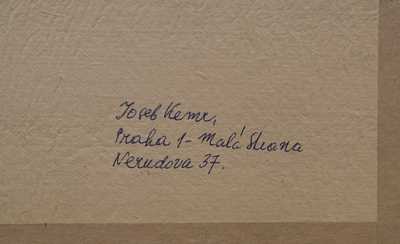 Josef Kemr,
Praha 1 - Malá Strana
Nerudova 37.